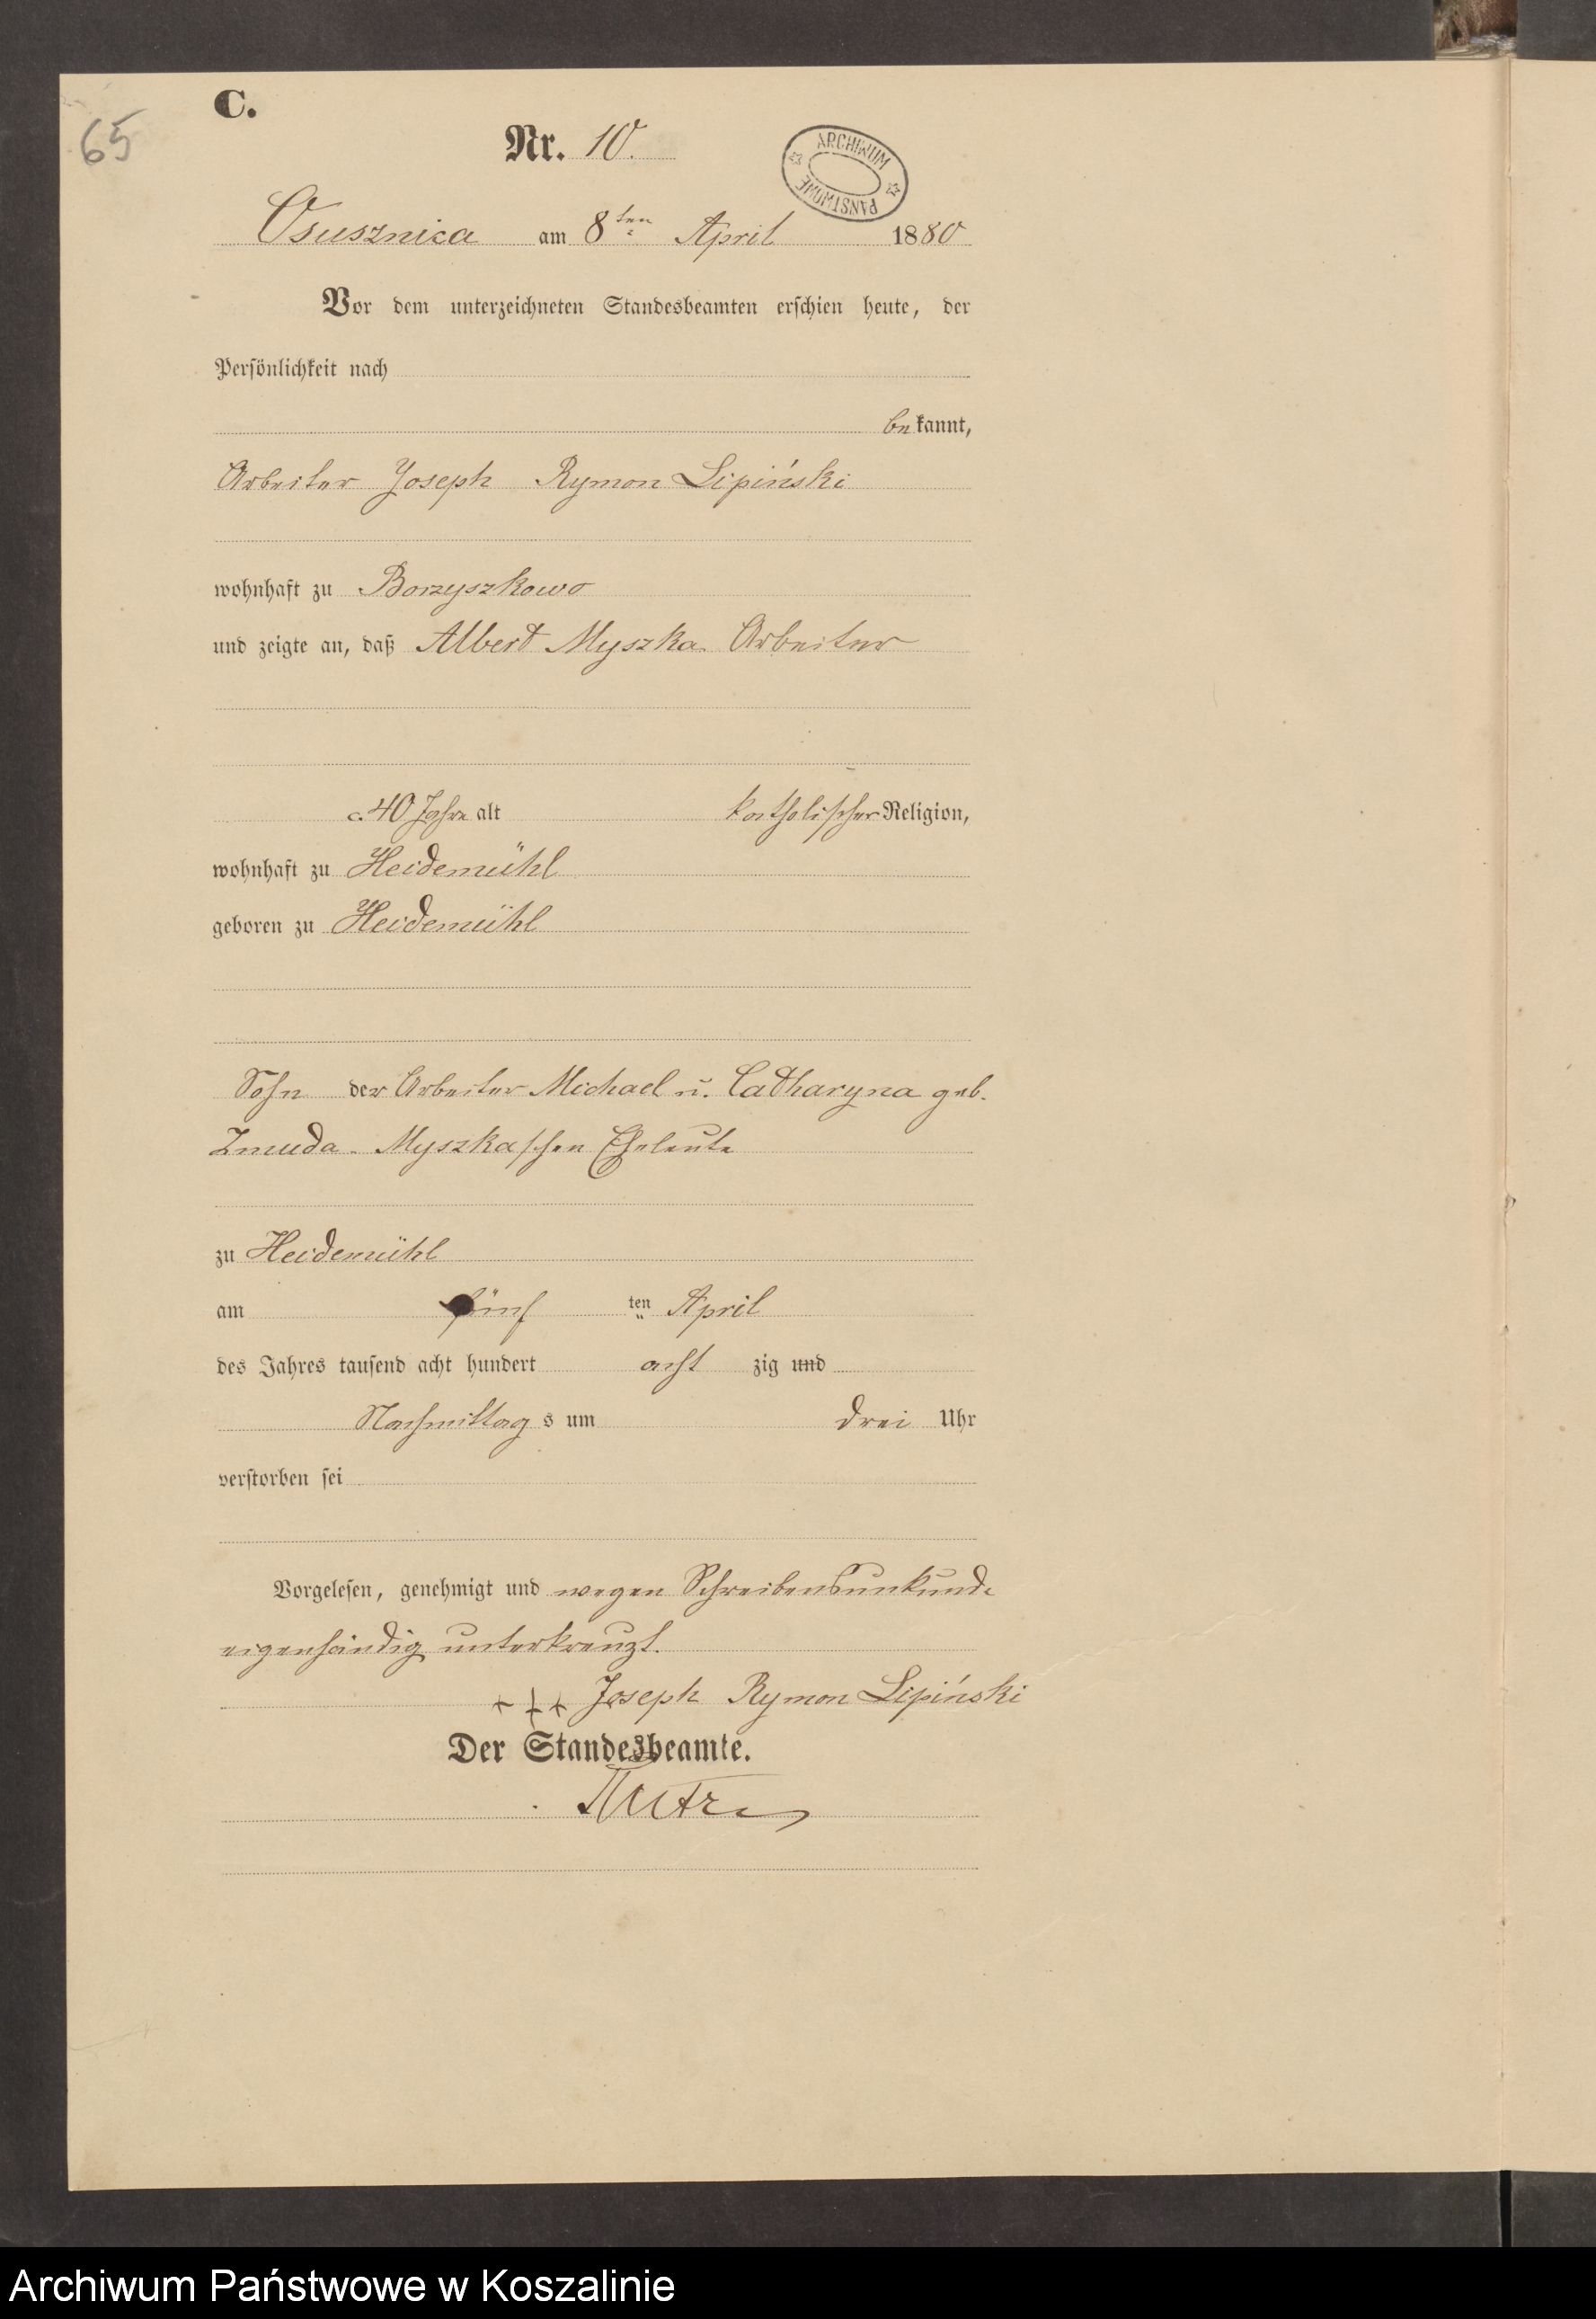 C.
65
Nr. 10.
ARCHIWUM PAŃSTWOWE
Osusznica am 8ten April 1880
Vor dem unterzeichneten Standesbeamten erschien heute, der
Persönlichkeit nach
bekannt,
Arbeiter Joseph Rymon Lipiński
wohnhaft zu Borzyszkowo
und zeigte an, daß Albert Myszka Arbeiter
c. 40 Jahre alt katholischer Religion,
wohnhaft zu Heidemühl
geboren zu Heidemühl
Sohn der Arbeiter Michael u. Catharyna geb.
Zmuda - Myszkaschen Eheleute
zu Heidemühl
am fünf ten April
des Jahres tausend acht hundert acht zig und
Nachmittag s um drei Uhr
verstorben sei
Vorgelesen, genehmigt und wegen Schreibensunkunde
eigenhändig unterkreuzt.
+++ Joseph Rymon Lipiński
Der Standesbeamte.
Archiwum Państwowe w Koszalinie